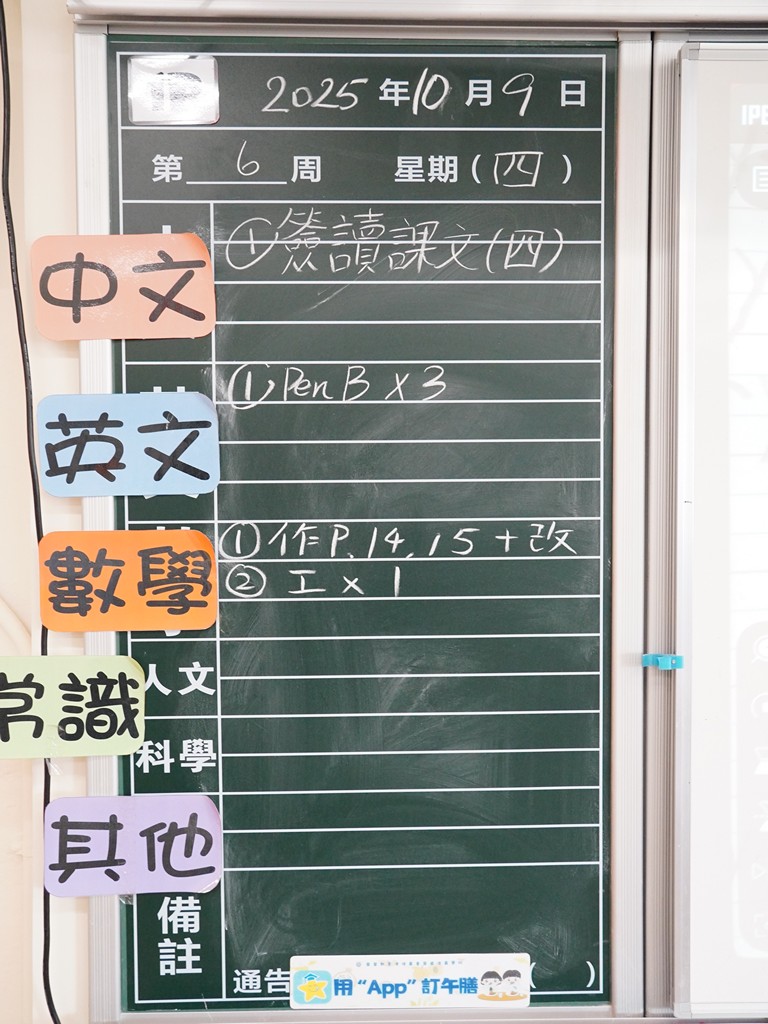 2025 年 10 月 9 日
第 6 周 星期(四)
中文
①簽讀課文(四)
英文
① Pen B x 3
數學
① 作 P.14, 15 + 改
② 工 x 1
人文
常識
科學
其他
備註
通告
用“App”訂午膳
( )